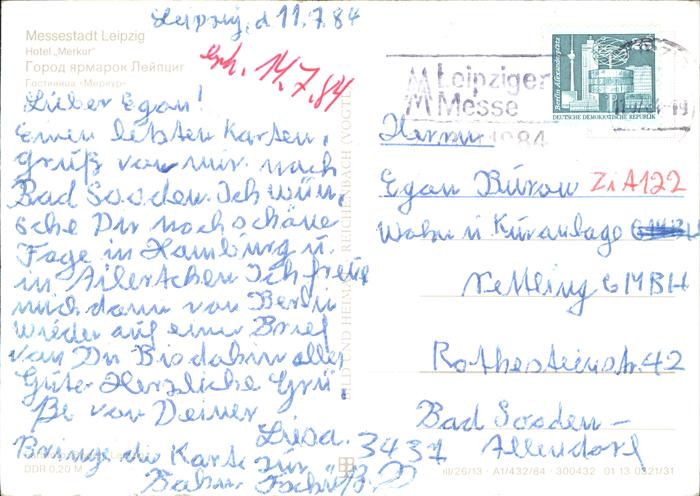 Leipzig, d 11.7.84
Messestadt Leipzig
Hotel „Merkur"
Город ярмарок Лейпциг
Гостиница «Меркур»
erh. 14.7.84
Lieber Egon!
Einen letzten Karten,
gruß von mir nach
Bad Sooden. Ich wün,
sche Dir noch schöne
Tage in Hamburg u.
in Ailertchen Ich freue
mich dann von Berlin
wieder auf einen Brief
von Dir Bis dahin alles
Gute Herzliche Grü,
ße von Deiner
Lisa.
Bringe die Karte zur
Bahn Tschüß
DDR 0,20 M
BILD UND HEIMAT REICHENBACH (VOGTL
Leipziger
Messe
1984
Berlin, Alexanderplatz
DEUTSCHE DEMOKRATISCHE REPUBLIK
Herrn
Egon Bürow Zi A122
Wohn u Kuranlage
GMBH
Rothesteinstr. 42
3437 Bad Sooden-
Allendorf
III/26/13 · A1/432/84 · 300432 01 13 0321/31